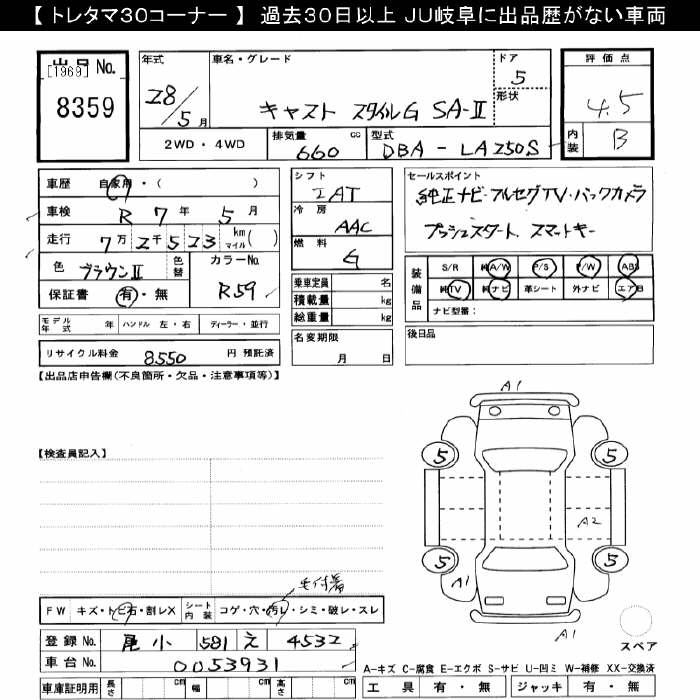 【 トレタマ30コーナー 】 過去30日以上 JU岐阜に出品歴がない車両
出品No.
[1969]
8359
年式
28/5月
車名・グレード
キャスト スタイルG SA-Ⅱ
ドア
5
形状
2WD・4WD
排気量 660 cc
型式 DBA - LA250S
評価点
4.5
内装 B
車歴 自家用・( )
車検 R 7年 5月
走行 7万2千523 km マイル( )
色 ブラウンⅡ 色替
カラーNo. R59
保証書 有・無
モデル年式 年 ハンドル 左・右 ディーラー・並行
リサイクル料金 8550 円 預託済
シフト
IAT
冷房
AAC
燃料
G
乗車定員 名
積載量 kg
総重量 kg
名変期限
月 日
セールスポイント
純正ナビ・フルセグTV・バックカメラ
プッシュスタート、スマートキー
装備品
S/R 純A/W P/S P/W ABS
純TV 純ナビ 革シート 外ナビ エアB
ナビ型番:
後日品
【出品店申告欄(不良箇所・欠品・注意事項等)】
【検査員記入】
A1
5
5
A2
5
5
A1
A1
スペア
FW キズ・トビ石・割レX シート内装 コゲ・穴・汚レ・シミ・破レ・スレ
登録No. 尾小 581 え 4532
車台No. 0053931
車庫証明用 長さ cm 幅 cm 高さ cm
A-キズ C-腐食 E-エクボ S-サビ U-凹ミ W-補修 XX-交換済
工具 有・無 ジャッキ 有・無